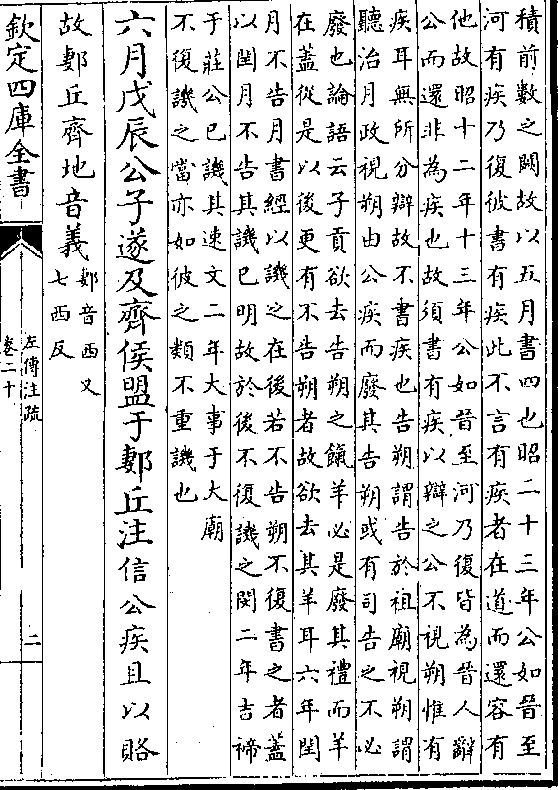 積前數之闕故以五月書四也昭二十三年公如晉至
河有疾乃復彼書有疾此不言有疾者在道而還容有
他故昭十二年十三年公如晉至河乃復皆為晉人辭
公而還非為疾也故須書有疾以辯之公不視朔惟有
疾耳無所分辯故不書疾也告朔謂告於祖廟視朔謂
聽治月政視朔由公疾而廢其告朔或有司告之不必
廢也論語云子貢欲去告朔之餼羊必是廢其禮而羊
在蓋從是以後更有不告朔者故欲去其羊耳六年閏
月不告月書經以譏之在後若不告朔不復書之者蓋
以閏月不告其譏已明故於後不復譏之閔二年吉禘
于莊公已譏其速文二年大事于大廟
不復譏之當亦如彼之類不重譏也
六月戊辰公子遂及齊侯盟于郪丘注信公疾且以賂
故郪丘齊地音義郪音西又
七西反
欽定四庫全書
左傳注疏
卷二十
二